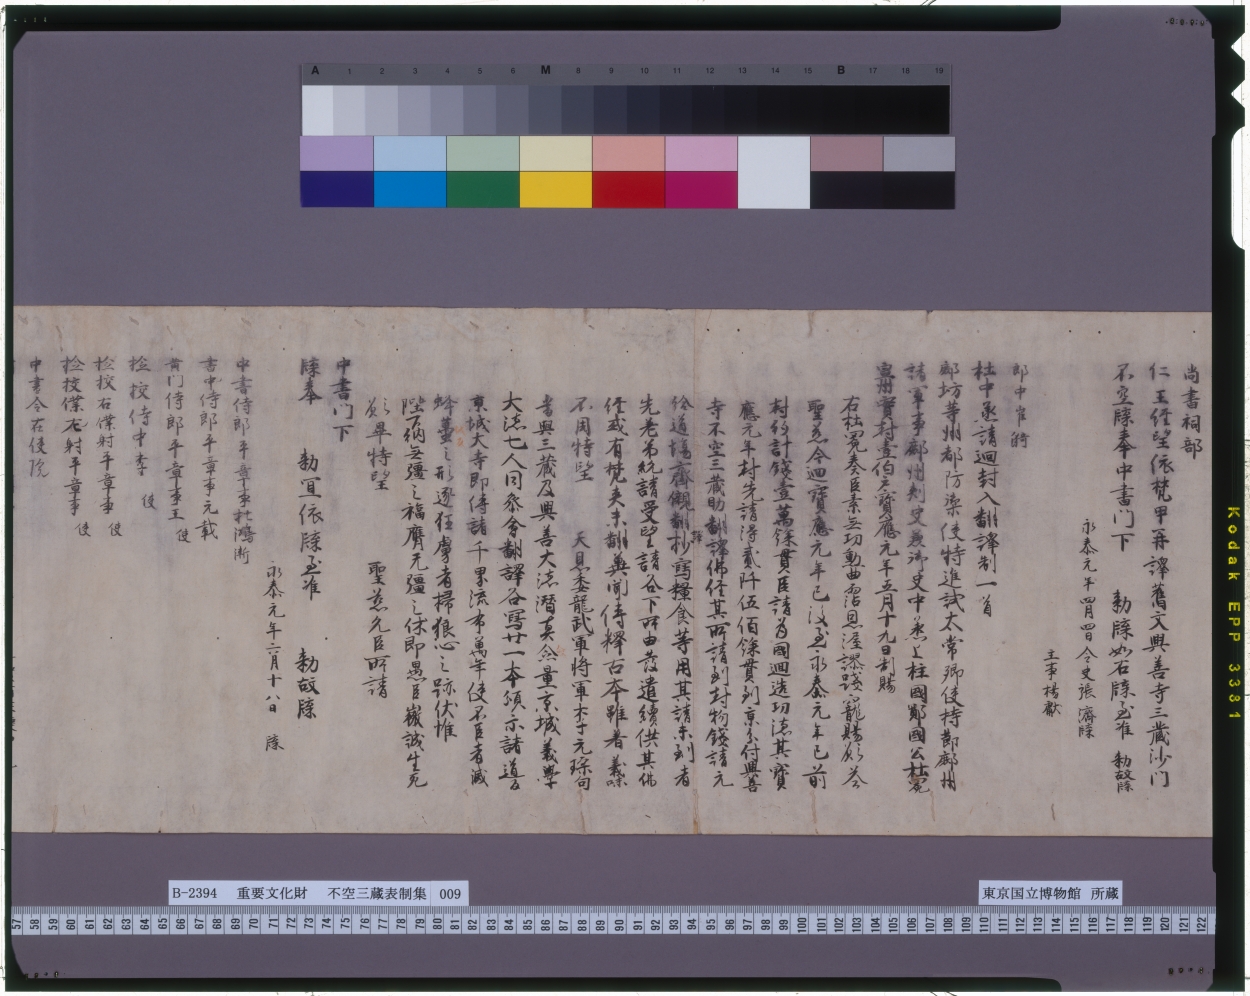 A 1 2 3 4 5 6 M 8 9 10 11 12 13 14 15 B 17 18 19
尚書祠部
仁王経望依梵甲再譯舊文興善寺三藏沙門
不空牒奉中書门下 勅牒如右牒至准 勅故牒
永泰元年四月四日令史張濟牒
主事楊獻
郎中崔漪
杜中丞請迴封入翻譯制一首
鄜坊等州都防禦使特進試太常卿使持節鄜州
諸軍事鄜州刺史兼御史中丞上柱國鄭國公杜冕
實封壹伯戸寶應元年五月十九日制賜
右杜冕奏臣素無功勳曲霑恩渥謬踐寵賜
聖恙今迴寶應元年已後至永泰元年已前
封約計錢壹萬餘貫臣請為國迴造功徳其寶
應元年封先請得貳阡伍佰餘貫到京分付興善
寺不空三藏助翻譯佛経其所請到封物錢請充
給道場齋儭翻抄寫糧食等用其請未到者
先老弟統請受望請各下所由發遣續供其佛
経或有梵夾未翻兼闻傳釋古本雖著義味
不周特望 天恩委龍武軍将軍李元琮句
當與三藏及興善大徳潜真念量京城義學
大徳七人同叅會翻譯各寫廿一本頒示諸道及
京城大寺即傳諸千界流布萬年使不臣者滅
蜂蠆之形逐狂虜者掃狼心之跡伏惟
陛下納無彊之福膺无彊之休即愚臣嶽誠生死
願畢特望 聖慈允臣所請
中書门下
牒奉 勅宜依牒至准 勅故牒
永泰元年六月十八日 牒
中書侍郎平章事杜鴻漸
書中侍郎平章事元載
黄门侍郎平章事王 使
撿挍侍中李 使
撿挍右僕射平章事 使
撿挍僕左射平章事 使
中書令在使院
B-2394 重要文化財 不空三藏表制集 009
東京国立博物館 所蔵
57 58 59 60 61 62 63 64 65 66 67 68 69 70 71 72 73 74 75 76 77 78 79 80 81 82 83 84 85 86 87 88 89 90 91 92 93 94 95 96 97 98 99 100 101 102 103 104 105 106 107 108 109 110 111 112 113 114 115 116 117 118 119 120 121 122
Kodak EPP 3381